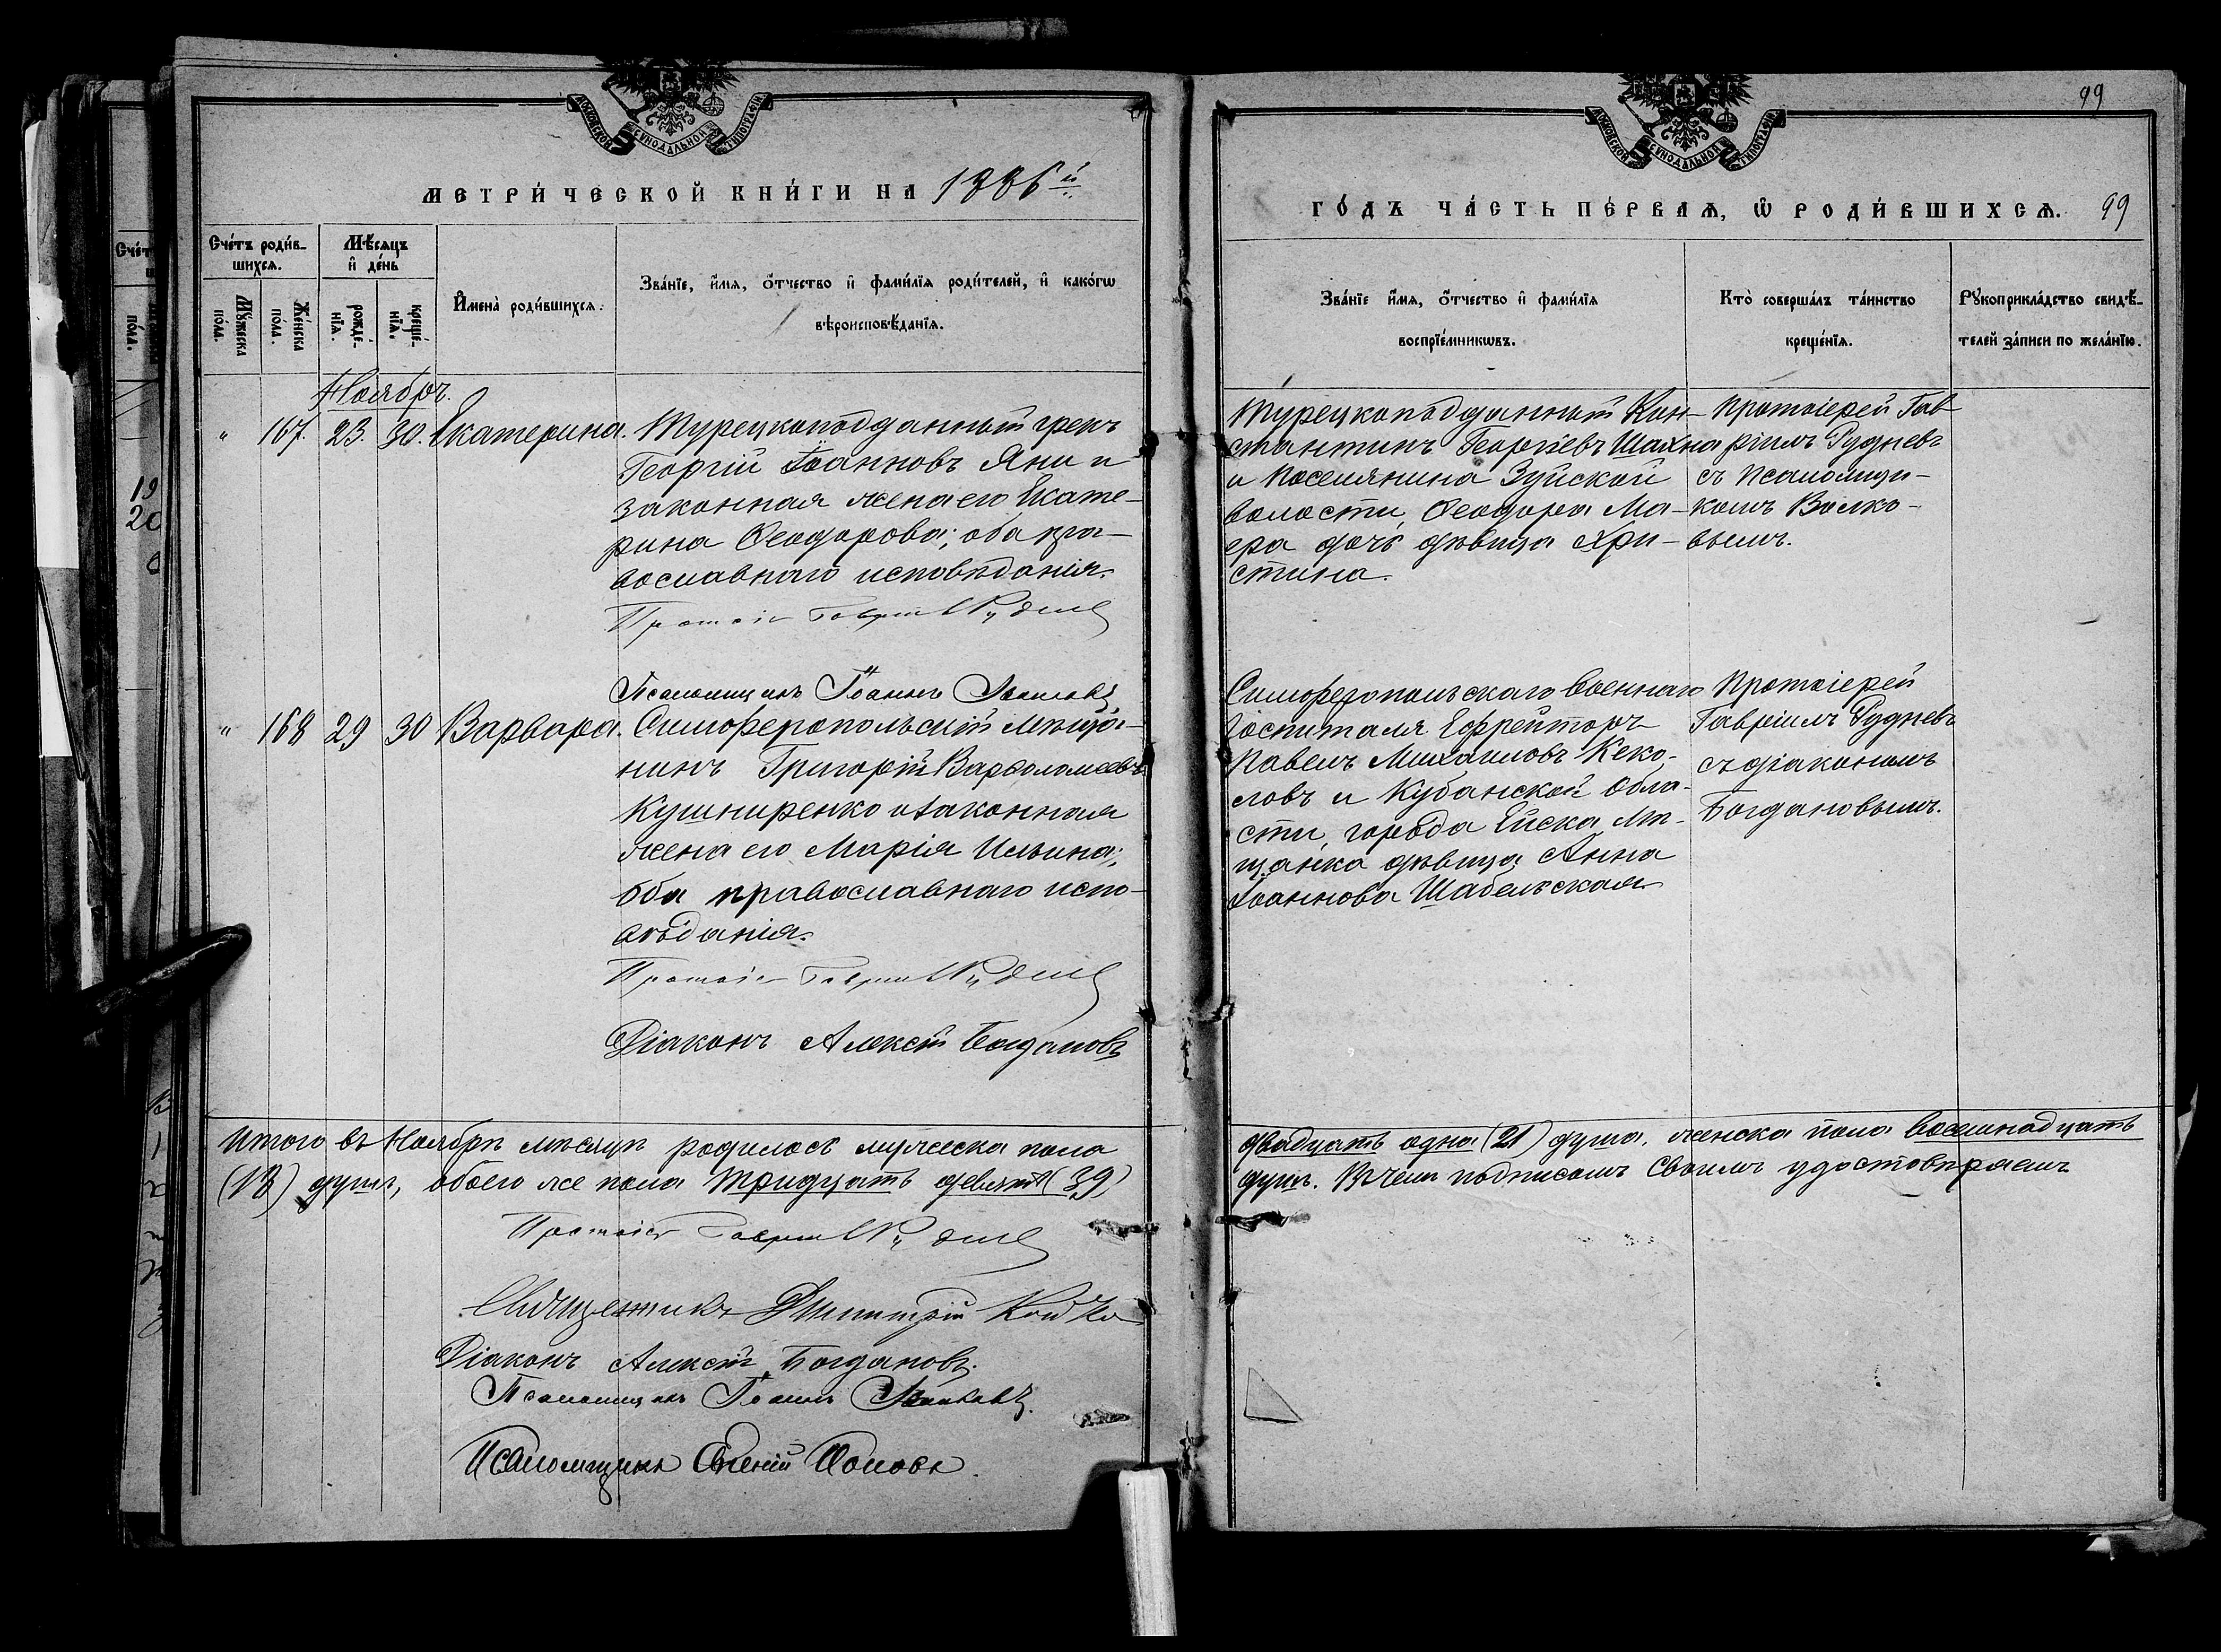 МОСКОВСКОЙ СѴНОДАЛЬНОЙ ТИПОГРАФІИ
МЕТРИ́ЧЕСКОЙ КНИ́ГИ НА 1886й
Сче́тъ роди́в-
шихсѧ.
Мѣ́сѧцъ
и҆ де́нь
Мꙋ́жеска
по́ла.
Же́нска
по́ла.
рожде́-
нїѧ.
креще́-
нїѧ.
И҆мена̀ роди́вшихсѧ.
Зва́нїе, и҆́мѧ, ѻ҆́тчество и҆ фами́лїѧ роди́телей, и҆ како́гѡ
вѣроисповѣ́данїѧ.
Ноябрь.
" 167. 23. 30. Екатерина. Турецкоподданный грекъ
Георгій Іоанновъ Яни и
законная жена его Екате-
рина Ѳеодорова; оба пра-
вославнаго исповѣданія.
Протоіе Гавріил Рудневъ
Псаломщикъ Іоаннъ Волковъ
" 168 29 30 Варвара. Симферопольскій мѣща-
нинъ Григорій Варѳоломеевъ
Кушниренко и законная
жена его Марія Ильина;
оба православнаго испо-
вѣданія.
Протоіе Гавріил Рудневъ
Діаконъ Алексѣй Богдановъ
Итого въ Ноябрѣ мѣсяцѣ родилось мужеска пола
(18) душъ, обоего же пола тридцать девять (39)
Протоіе Гавріил Рудневъ
Священникъ Димитрій Койко
Діаконъ Алексѣй Богдановъ.
Псаломщикъ Іоаннъ Волковъ.
Псаломщикъ Евгеній Поповъ.
99
МОСКОВСКОЙ СѴНОДАЛЬНОЙ ТИПОГРАФІИ
ГО́ДЪ ЧА́СТЬ ПЕ́РВАѦ, Ѽ РОДИ́ВШИХСѦ. 99
Зва́нїе и҆́мѧ, ѻ҆́тчество и҆ фами́лїѧ
воспрїе́мникѡвъ.
Кто̀ соверша́лъ та́инство
креще́нїѧ.
Рꙋкоприкла́дство свидѣ́-
телей за́писи по жела́нїю.
Турецкоподданный Кон-
стантинъ Георгіевъ Шахна
и поселянина Зуйской
волости, Ѳеодора Ма-
ера дочь дѣвица Хри-
стина.
Протоіерей Гав-
ріилъ Рудневъ
съ псаломщи-
комъ Волко-
вымъ.
Симферопольскаго военнаго
госпиталя Ефрейторъ
Павелъ Михаиловъ Кеко-
ловъ и Кубанской обла-
сти, города Ейска мѣ-
щанка дѣвица Анна
Іоаннова Шабельская
Протоіерей
Гавріилъ Рудневъ
съ діакономъ
Богдановымъ.
двадцать одна (21) душа. женска пола восемнадцать
душъ. Въ чемъ подписомъ своимъ удостовѣряемъ